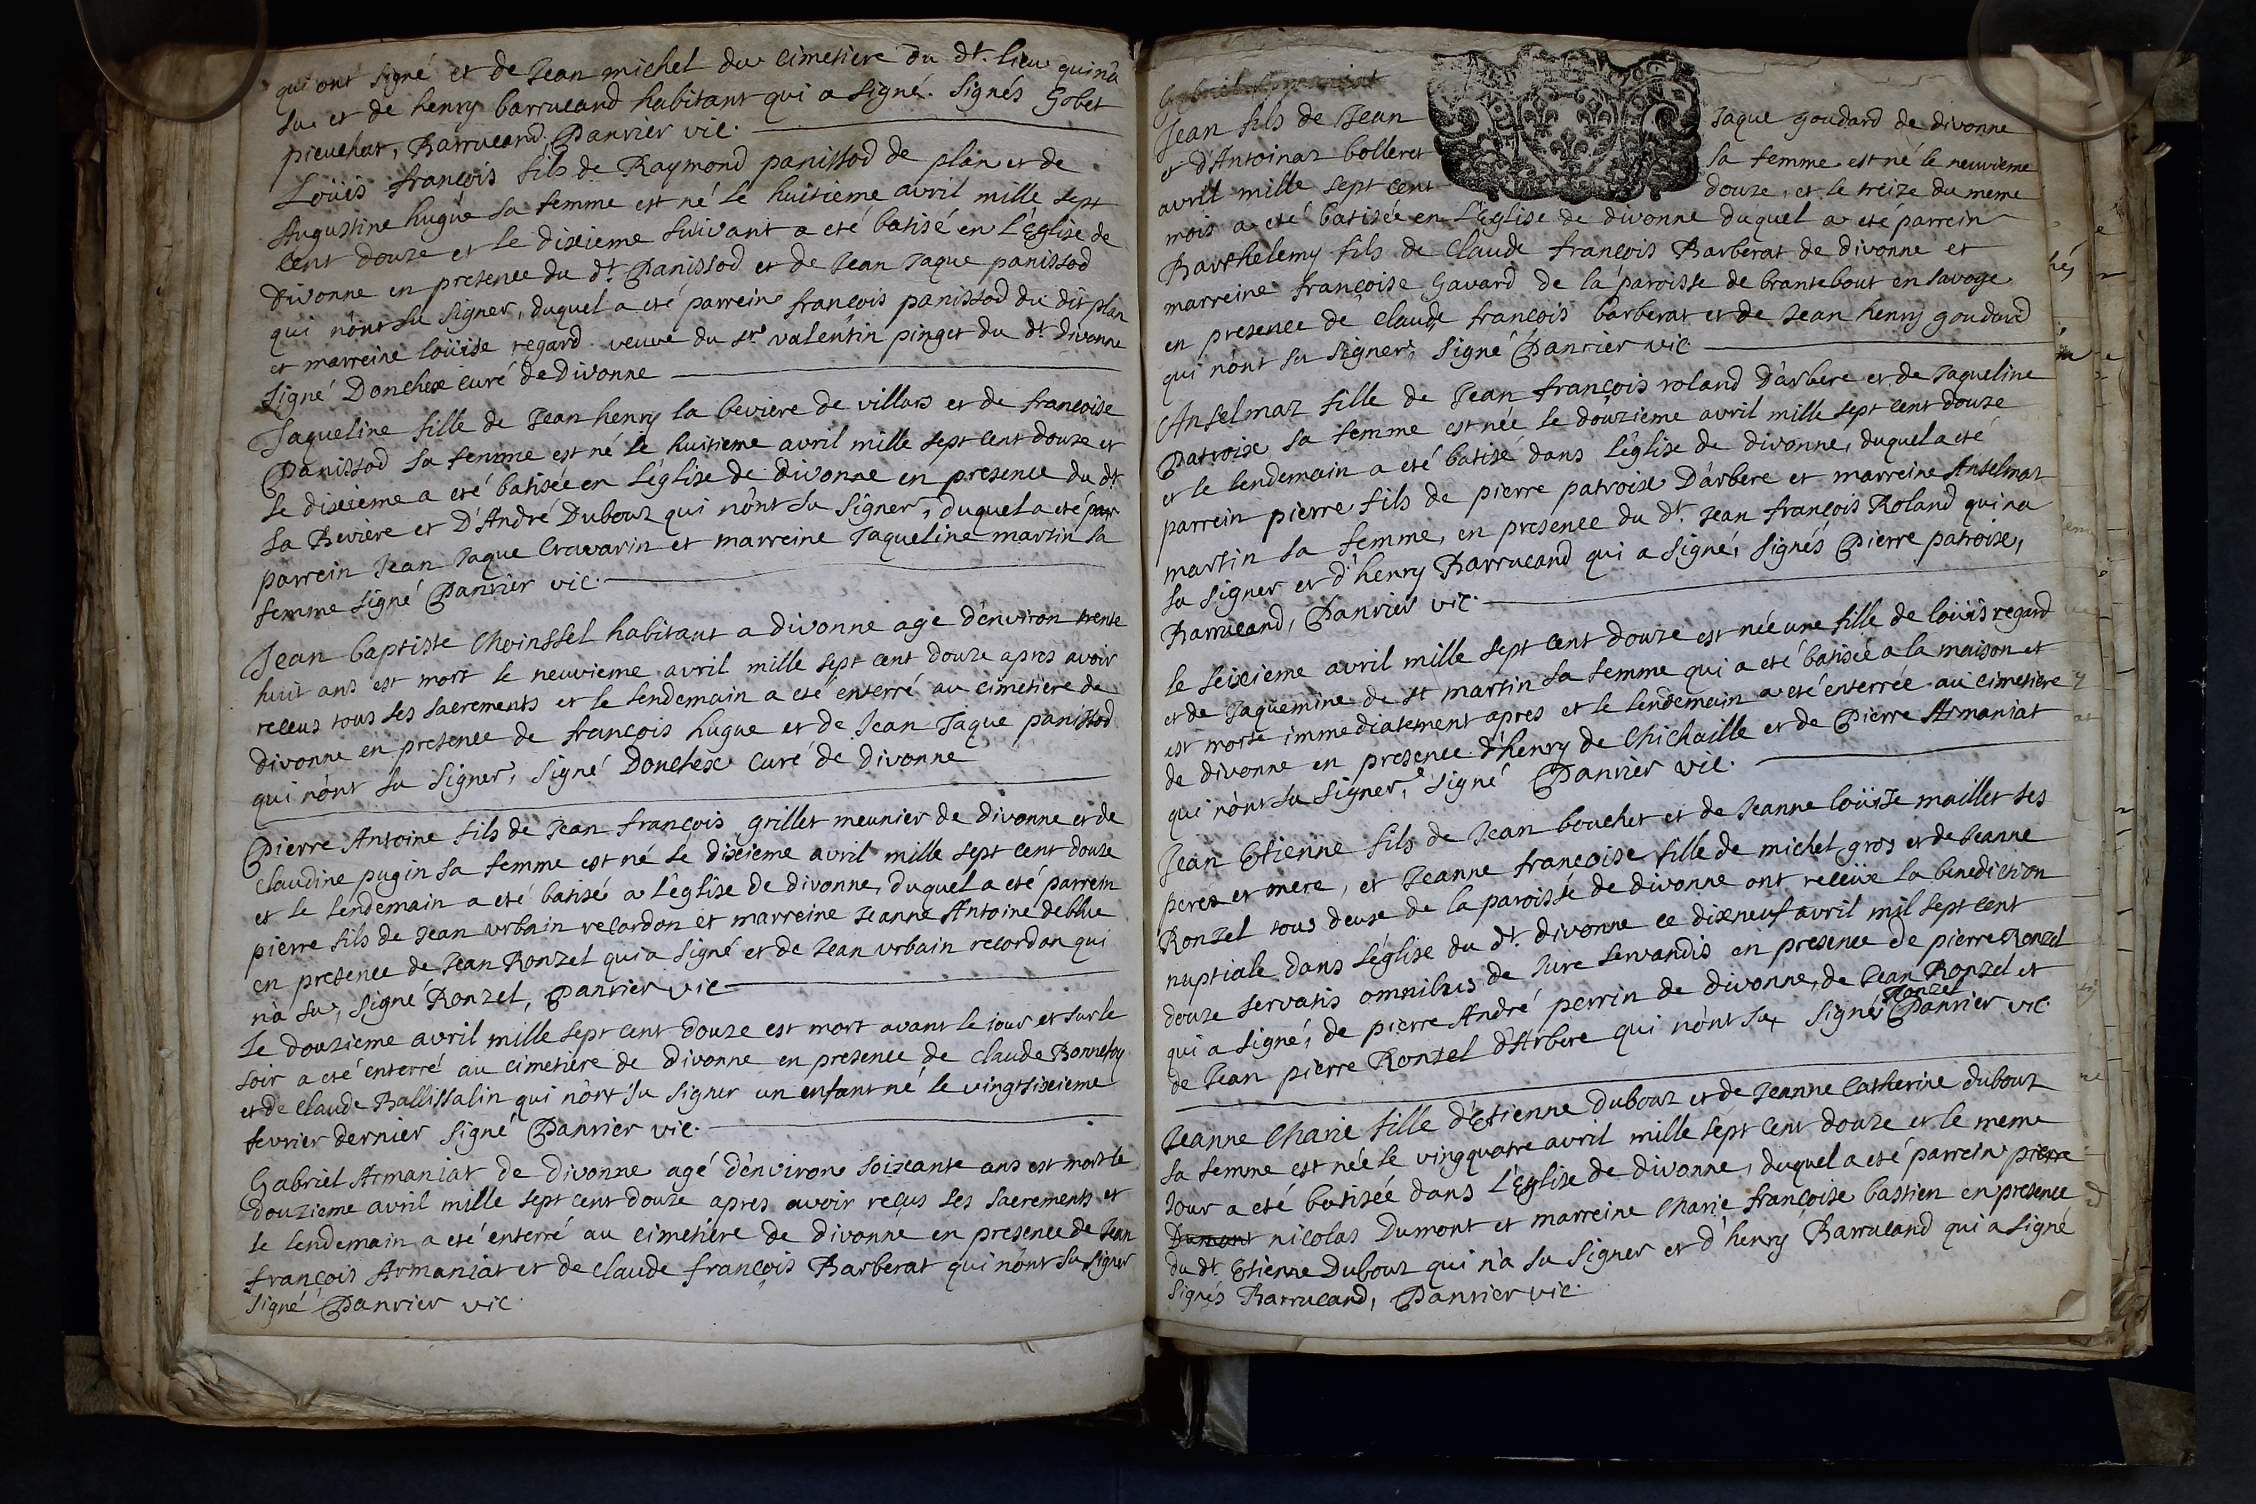 qui ont signé et de Jean michel du cimetiere du dt. lieu qui n'a
su et de henry barrucand habitant qui a signé. Signés Gobet
pieuchat, Barrucand, Panrier vic.
Loüis françois fils de Raymond panissod de plan et de
Augustine hugue sa femme est né le huitieme avril mille sept
cent douze et le dixieme suivant a eté batisé en l'Eglise de
Divonne en presence du dt. Panissod et de Jean Jaque panissod
qui n'ont su signer, duquel a eté parrein françois panissod du dit plan
et marreine loüise regard veuve du sr. valentin pinget du dt. divonne
signé Donchex curé de Divonne
Jaqueline fille de Jean henry la beviere de villars et de françoise
Panissod sa femme est né le huitieme avril mille sept cent douze et
le dixieme a eté batisée en l'église de divonne en presence du dt.
la Beviere et D'André Dubouz qui n'ont su signer, duquel a eté par
parrein Jean Jaque Cravarin et marreine Jaqueline martin sa
femme signé Panrier vic.
Jean baptiste Choinssel habitant a divonne agé d'environ trente
huit ans est mort le neuvieme avril mille sept cent douze apres avoir
receus tous ses sacrements et le lendemain a eté enterré au cimetiere de
divonne en presence de françois hugue et de Jean Jaque panissod
qui n'ont su signer, signé Donchex curé de divonne
Pierre Antoine fils de Jean françois grillet meunier de divonne et de
Claudine pugin sa femme est né le dixieme avril mille sept cent douze
et le lendemain a eté batisé a l'église de divonne, duquel a eté parrein
pierre fils de Jean urbain recordon et marreine Jeanne Antoine deblue
en presence de Jean Ronzel qui a signé et de Jean urbain recordon qui
n'a su, signé Ronzel, Panrier vic
Le douzieme avril mille sept cent douze est mort avant le jour et sur le
soir a eté enterré au cimetiere de divonne en presence de claude Bonnefoy
et de claude Ballissalin qui n'ont su signer un enfant né le vingtsixieme
fevrier dernier signé Panrier vic.
Gabriel Armaniat de divonne agé d'environ soixante ans est mort le
douzieme avril mille sept cent douze apres avoir reçus ses sacrements et
le lendemain a eté enterré au cimetiere de divonne en presence de Jean
françois Armaniat et de claude françois Barberat qui n'ont su signer
signé Panrier vic.
Gabriel Armaniat
Jean fils de Jean Jaque goudard de divonne
et d'Antoinaz bolleret sa femme est né le neuvieme
avril mille sept cent douze, et le treize du meme
mois a eté batisée en l'Eglise de divonne duquel a eté parrein
Barthelemy fils de Claude françois Barberat de divonne et
marreine françoise Gavard de la paroisse de brantebout en savoye
en presence de claude françois barberat et de Jean henry goudard
qui n'ont su signer, signé Panrier vic
Anselmaz fille de Jean françois roland D'arbere et de Jaqueline
Patroix sa femme est née le douzieme avril mille sept cent douze
et le lendemain a eté batisé dans l'église de divonne, duquel a eté
parrein pierre fils de pierre patroix D'arbere et marreine Anselmaz
martin sa femme, en presence du dt. Jean françois Roland qui n'a
su signer et d'henry Barrucand qui a signé, signés Pierre patroix,
Barrucand, Panrier vic.
le seixieme avril mille sept cent douze est née une fille de loüis regard
et de Jaquemine de st martin sa femme qui a eté batisée a la maison et
est morte immediatement apres et le lendemain a eté enterrée au cimetiere
de divonne en presence d'henry de Chichaille et de Pierre Armaniat
qui n'ont su signer, signé Panrier vic.
Jean Etienne fils de Jean bouchet et de Jeanne loüise maillet ses
peres et mere, et Jeanne françoise fille de michel gros et de Jeanne
Ronzel tous deux de la paroisse de divonne ont receüe la benediction
nuptiale dans l'église du dt. divonne ce dixneuf avril mil sept cent
douze servatis omnibus de Jure servandis en presence de pierre Ronzel
qui a signé, de pierre André perrin de divonne, de Jean Ronzel et
de Jean pierre Ronzel d'Arbere qui n'ont su, signés Ronzel Panrier vic
Jeanne Marie fille d'Etienne Dubouz et de Jeanne Catherine dubouz
sa femme est née le vingquatre avril mille sept cent douze et le meme
Jour a eté batisée dans l'Eglise de divonne, duquel a eté parrein pierre
Dumont nicolas Dumont et marreine Marie françoise bastien en presence
du dt. Etienne Dubouz qui n'a su signer et d'henry Barrucand qui a signé
signés Barrucand, Panrier vic.